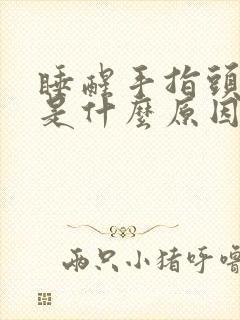 睡醒手指頭
是什麼原因
兩只小豬呼嚕